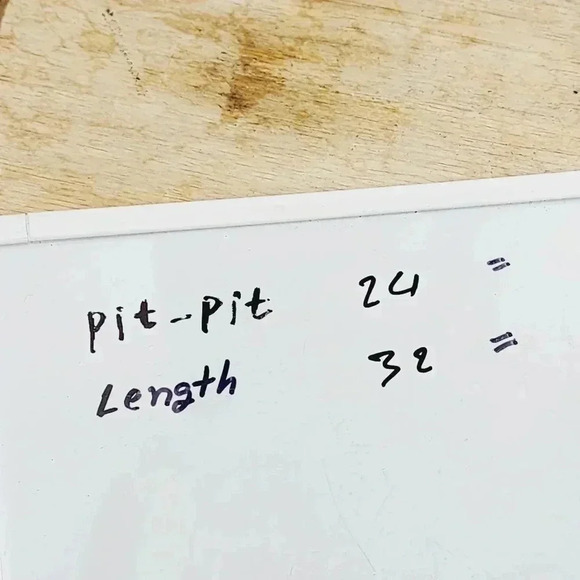 pit-pit 24 "
Length 32 "